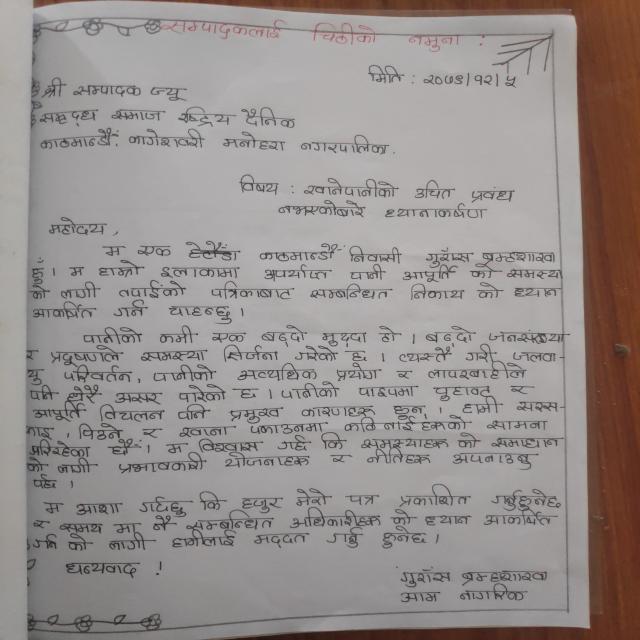 सम्पादकलाई चिठीको नमुना :
मिति : २०७९/१२/५
श्री सम्पादक ज्यू
समृद्ध समाज राष्ट्रिय दैनिक
काठमान्डौं, कागेश्वरी मनोहरा नगरपालिका.
विषय : खानेपानीको उचित प्रवंध
नभएकोबारे ध्यानाकर्षण
महोदय,
म एक काठमान्डौं निवासी गुराँस ब्रम्हशाखा
हुँ । म हाम्रो इलाकामा अपर्याप्त पानी आपूर्ति को समस्या
को लागी तपाईंको पत्रिकाबाट सम्बन्धित निकाय को ध्यान
आकर्षित गर्न चाहन्छु ।
पानीको कमी एक बढ्दो मुद्दा हो । बढ्दो जनसंख्या
र प्रदुषणले समस्या सिर्जना गरेको छ । त्यस्तै गरी जलवा-
यु परिवर्तन, पानीको अत्यधिक प्रयोग र लापरबाहीले
पनि धेरै असर पारेको छ । पानीको पाइपमा चुहावट र
आपूर्ति विचलन पनि प्रमुख कारणहरू हुन् । हामी सरस-
फाइ, पिउने र खाना पकाउनमा कठिनाईहरूको सामना
गरिरहेका छौं । म विश्वास गर्छु कि समस्याहरू को समाधान
को लागी प्रभावकारी योजनाहरू र नीतिहरू अपनाउनु
पर्छ ।
म आशा गर्दछु कि हजुर मेरो पत्र प्रकाशित गर्नुहुनेछ
र समय मा नै सम्बन्धित अधिकारीहरू को ध्यान आकर्षित
गर्न को लागी हामीलाई मद्दत गर्नु हुनेछ ।
धन्यवाद !
गुराँस ब्रम्हशाखा
आम नागरिक